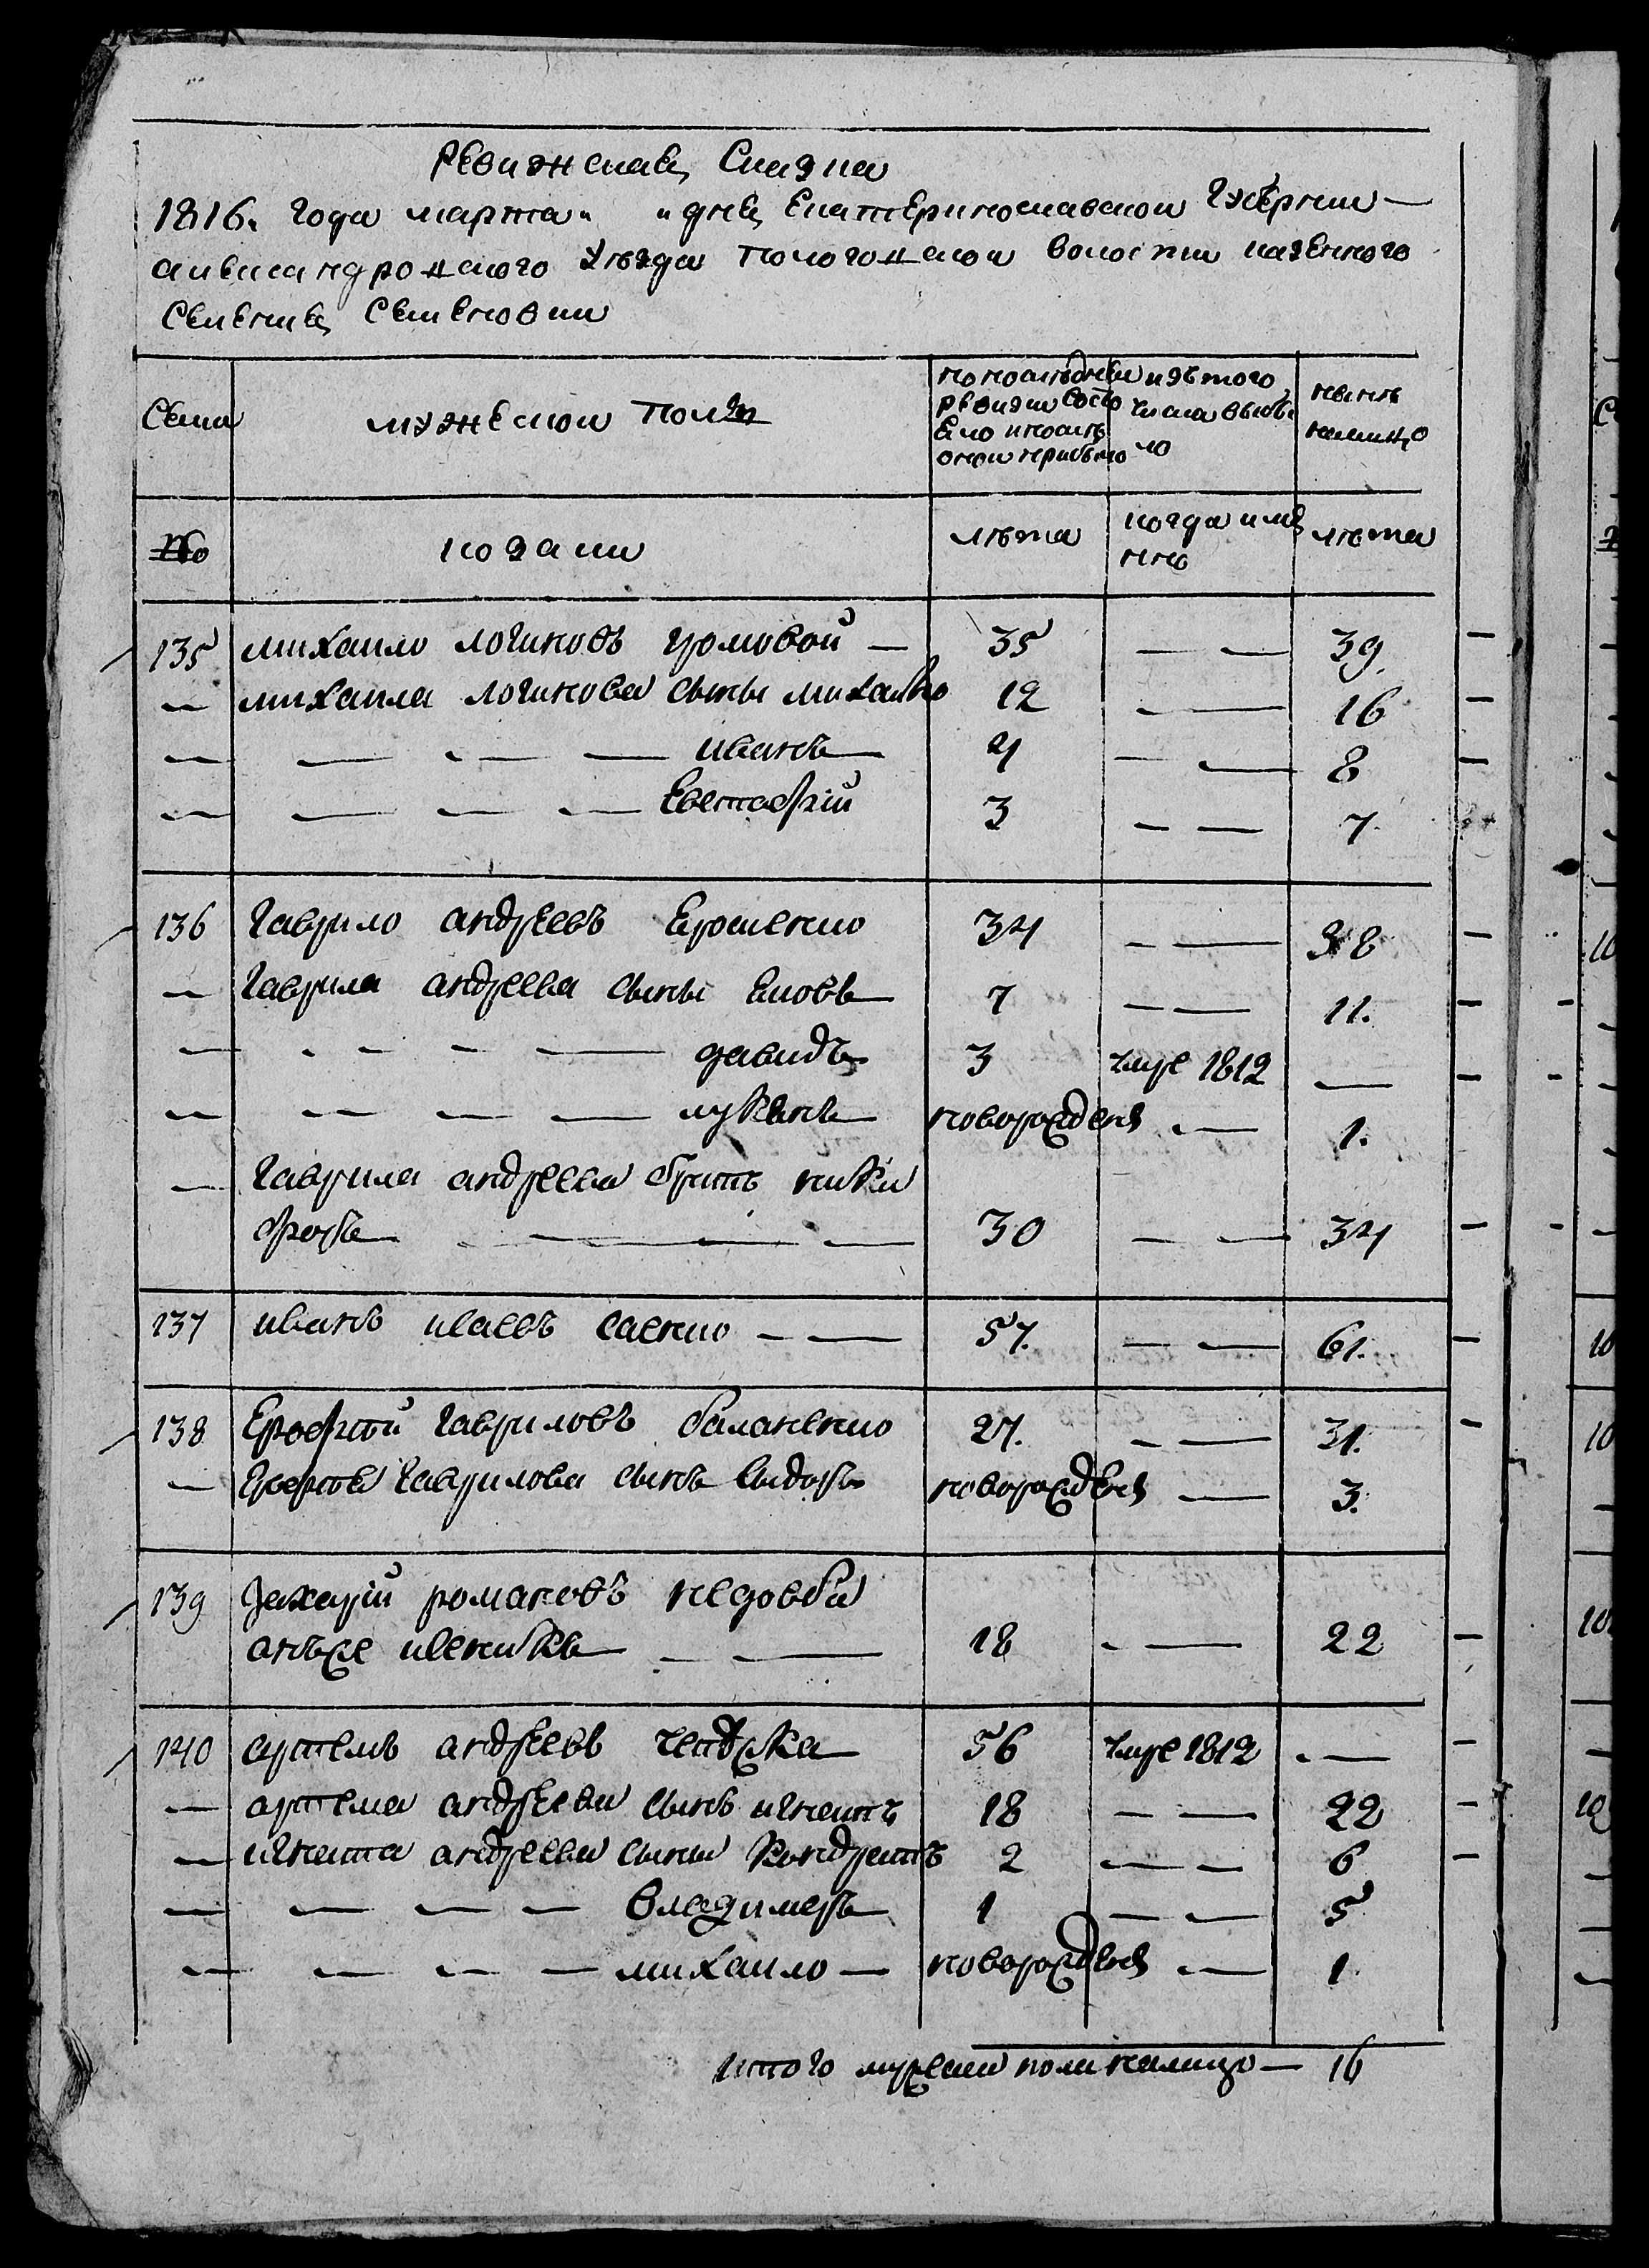 Ревижская Сказка
1816. года марта „ „ дня Екатеринославской Губернии —
александровского уезда Пологовской волости казенного
Селения Семеновки
Семьи мужескои Полъ по последней ревизии состояло и после оной прибыло изъ того числа выбыло ныне налицо
№ козаки лѣта когда имянно лѣта
135 михаило логиновъ громовой — 35 — — 39
— михаила логинова сыны михаило 12 — 16
— — — — иванъ 4 — — 8
— — — — Евстафий 3 — — 7
136 Гаврило андреевъ Ерошенко 34 — — 38
— Гаврила андреева сыны Яковъ 7 — — 11.
— — — — давидъ 3 умре 1812 —
— — — — лукянъ новорожденъ — 1.
— Гаврила андреева братъ ники
форъ — — — 30 — — 34
137 иванъ исаевъ саенко — — 57. — — 61.
138 Ерофтей Гавриловъ баланенко 27. — — 31.
— Ерофтея Гаврилова сынъ Сидоръ новорожденъ — 3.
139 Захарий романовъ недовба
онъже ивенко — — 18 — — 22
140 артемъ андреевъ 56 умре 1812 —
— артема андреева сынъ игнатъ 18 — — 22
— игната андреева сыны Кондратъ 2 — — 6
— — — — Владимеръ 1 — — 5
— — — — михаило — новорожденъ — 1
Итого мужеска пола налицо — 16